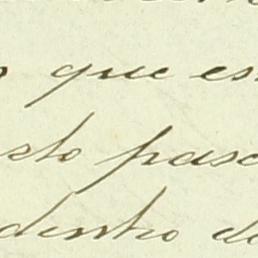 que es
sto pasc
dentro do